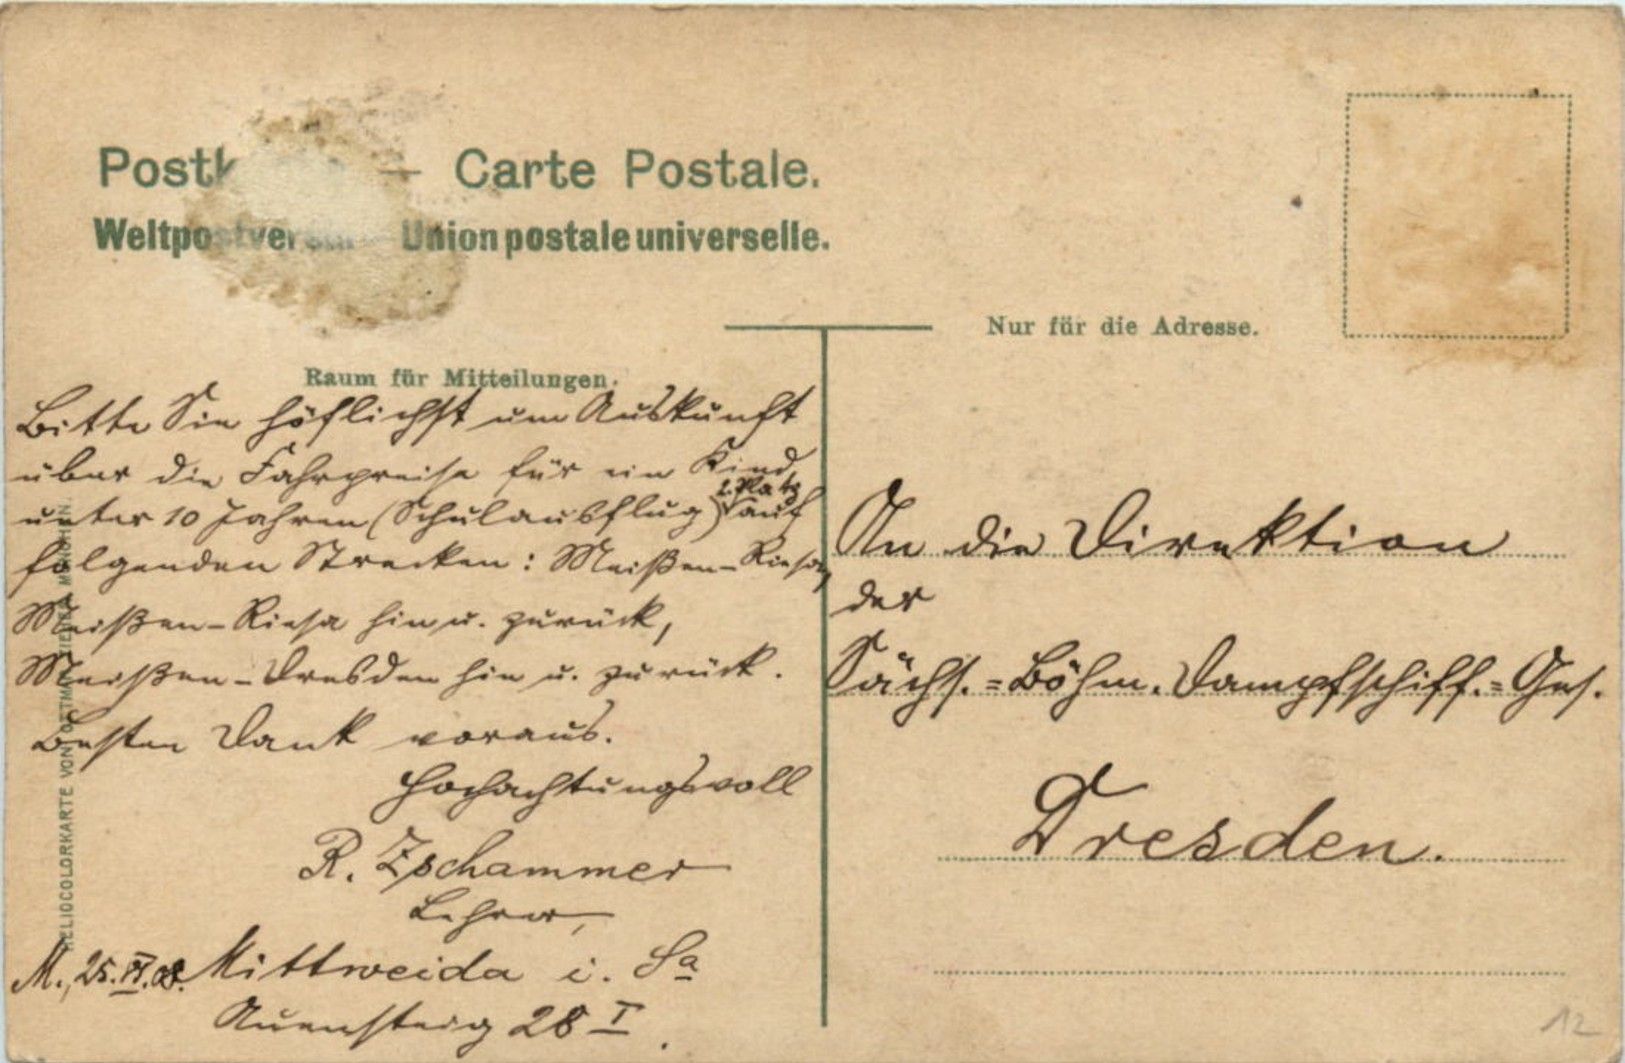 Postk — Carte Postale.
Weltpostverein — Union postale universelle.
Nur für die Adresse.
Raum für Mitteilungen.
Bitte Sie höflichst um Auskunft
über die Fahrpreise für ein Kind
unter 10 Jahren (Schulausflug) 2. Platz auf
folgenden Strecken: Meißen–Riesa,
Meißen–Riesa hin u. zurück,
Meißen–Dresden hin u. zurück.
Besten Dank voraus.
Hochachtungsvoll
R. Zschammer
Lehrer,
M., 25.VI.08. Mittweida i. Sa
Auensteig 28 I.
An die Direktion
der
Sächs.=Böhm. Dampfschiff.=Ges.
Dresden.
HELIOCOLORKARTE VON OTTMAR ZIEHER, MÜNCHEN.
12